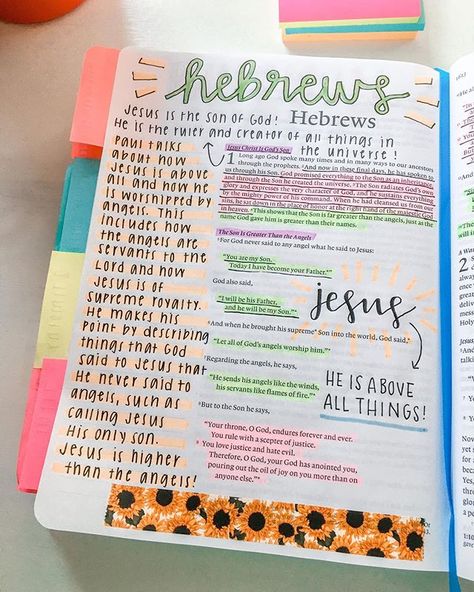 hebrews
Hebrews
Jesus is the son of God!
He is the ruler and creator of all things in
the universe!
Paul talks
about how
Jesus is above
all and how he
is worshipped by
angels. This
includes how
the angels are
servants to the
Lord and how
Jesus is of
supreme royalty.
He makes his
point by describing
things that God
said to Jesus that
He never said to
angels, such as
calling Jesus
His only son.
Jesus is higher
than the angels!
Jesus Christ Is God's Son
1 Long ago God spoke many times and in many ways to our ancestors
through the prophets. ²And now in these final days, he has spoken to
us through his Son. God promised everything to the Son as an inheritance,
and through the Son he created the universe. ³The Son radiates God's own
glory and expresses the very character of God, and he sustains everything
by the mighty power of his command. When he had cleansed us from our
sins, he sat down in the place of honor at the right hand of the majestic God
in heaven. ⁴This shows that the Son is far greater than the angels, just as the
name God gave him is greater than their names.
The Son Is Greater Than the Angels
⁵For God never said to any angel what he said to Jesus:
"You are my Son.
Today I have become your Father."
God also said,
"I will be his Father,
and he will be my Son."
⁶And when he brought his supreme Son into the world, God said,
"Let all of God's angels worship him."
⁷Regarding the angels, he says,
"He sends his angels like the winds,
his servants like flames of fire."
⁸But to the Son he says,
"Your throne, O God, endures forever and ever.
You rule with a scepter of justice.
⁹You love justice and hate evil.
Therefore, O God, your God has anointed you,
pouring out the oil of joy on you more than on
anyone else."
jesus
HE IS ABOVE
ALL THINGS!